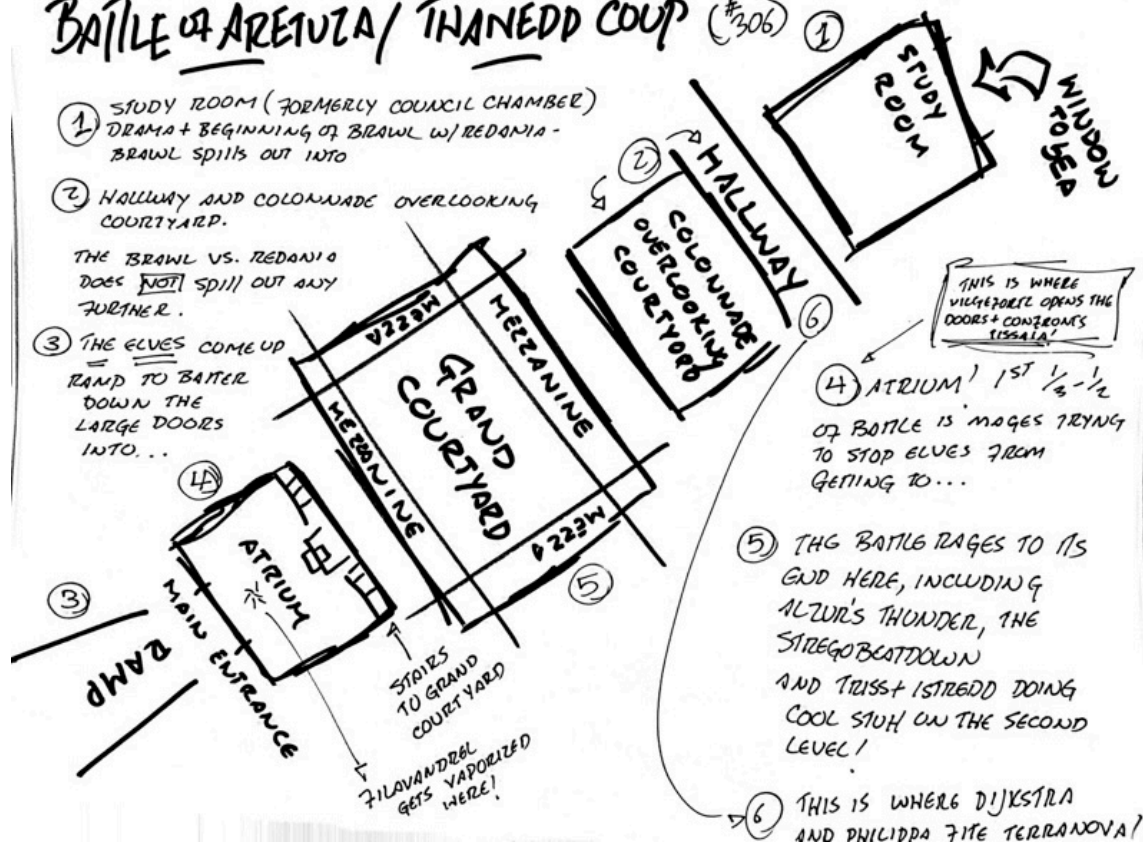 BATTLE OF ARETUZA/ THANEDD COUP (#306)
① STUDY ROOM (FORMERLY COUNCIL CHAMBER)
DRAMA + BEGINNING OF BRAWL W/ REDANIA -
BRAWL SPILLS OUT INTO
② HALLWAY AND COLONNADE OVERLOOKING
COURTYARD.
THE BRAWL VS. REDANIA
DOES NOT SPILL OUT ANY
FURTHER.
③ THE ELVES COME UP
RAMP TO BATTER
DOWN THE
LARGE DOORS
INTO...
①
STUDY
ROOM
WINDOW
TO SEA
②
HALLWAY
COLONNADE
OVERLOOKING
COURTYARD
⑥
MEZZA
MEZZANINE
GRAND
COURTYARD
MEZZANINE
MEZZA
⑤
④
ATRIUM
③
RAMP
MAIN ENTRANCE
STAIRS
TO GRAND
COURTYARD
FILAVANDREL
GETS VAPORIZED
HERE!
THIS IS WHERE
VILGEFORTZ OPENS THE
DOORS + CONFRONTS
TISSAIA!
④ ATRIUM! 1ST 1/3 - 1/2
OF BATTLE IS MAGES TRYNG
TO STOP ELVES FROM
GETTING TO...
⑤ THE BATTLE RAGES TO ITS
END HERE, INCLUDING
ALZUR'S THUNDER, THE
STREGOBEATDOWN
AND TRISS + ISTREDD DOING
COOL STUFF ON THE SECOND
LEVEL!
⑥ THIS IS WHERE DIJKSTRA
AND PHILIPPA FITE TERRANOVA!